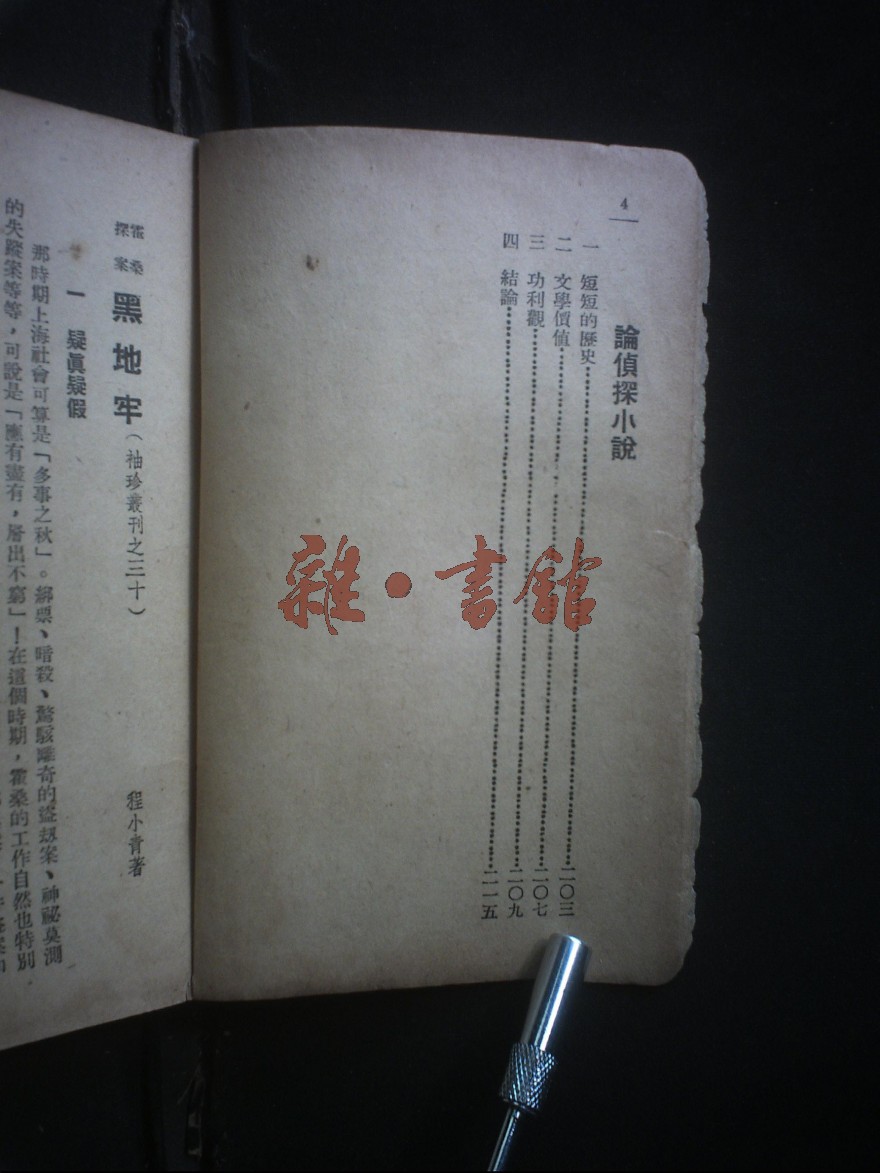 4
論偵探小說
一 短短的歷史……二〇三
二 文學價值……二〇七
三 功利觀……二〇九
四 結論……二一五
霍桑探案 黑地牢(袖珍叢刊之三十) 程小青著
一 疑眞疑假
那時期上海社會可算是「多事之秋」。綁票、暗殺、驚駭離奇的盜刼案、神祕莫測
的失蹤案等等,可說是「應有盡有,層出不窮」!在這個時期,霍桑的工作自然也特別
雜·書館